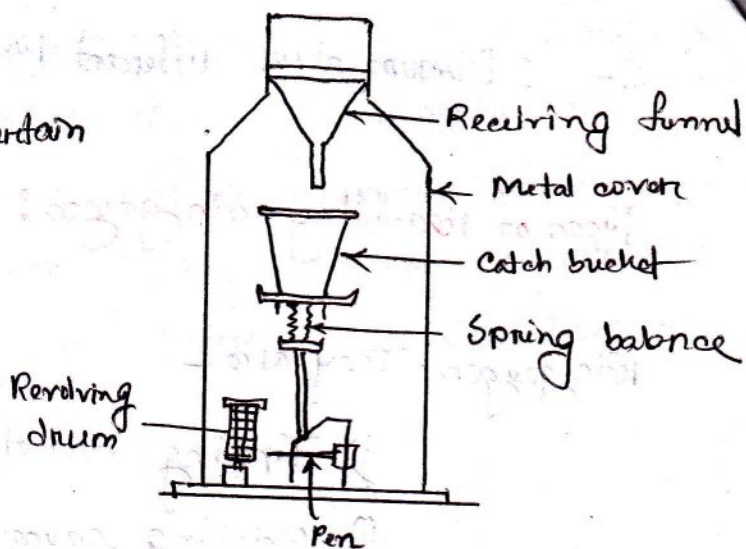 Receiving funnel
Metal cover
Catch bucket
Spring babnce
Revolving
drum
Pen